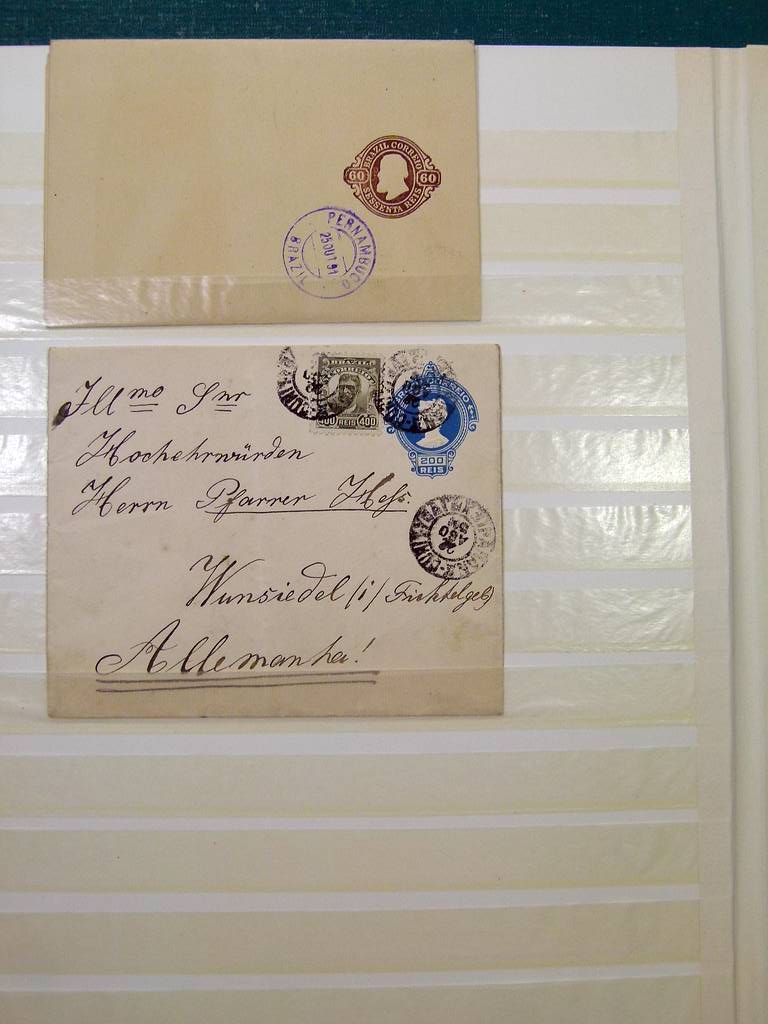 BRAZIL CORREIO
60 60
SESSENTA REIS
PERNAMBUCO
25 OUT 91
BRAZIL
BRAZIL
CORREIO
400 REIS 400
CORREIO
200
REIS
Illmo Snr
Hochehrwürden
Herrn Pfarrer Hess.
AGO
Wunsiedel (i/ Fichtelgeb)
Allemanha!